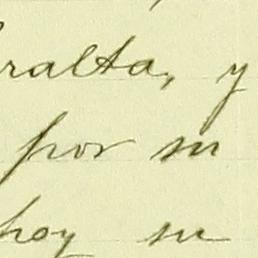 ralta, y
por su
hoy su